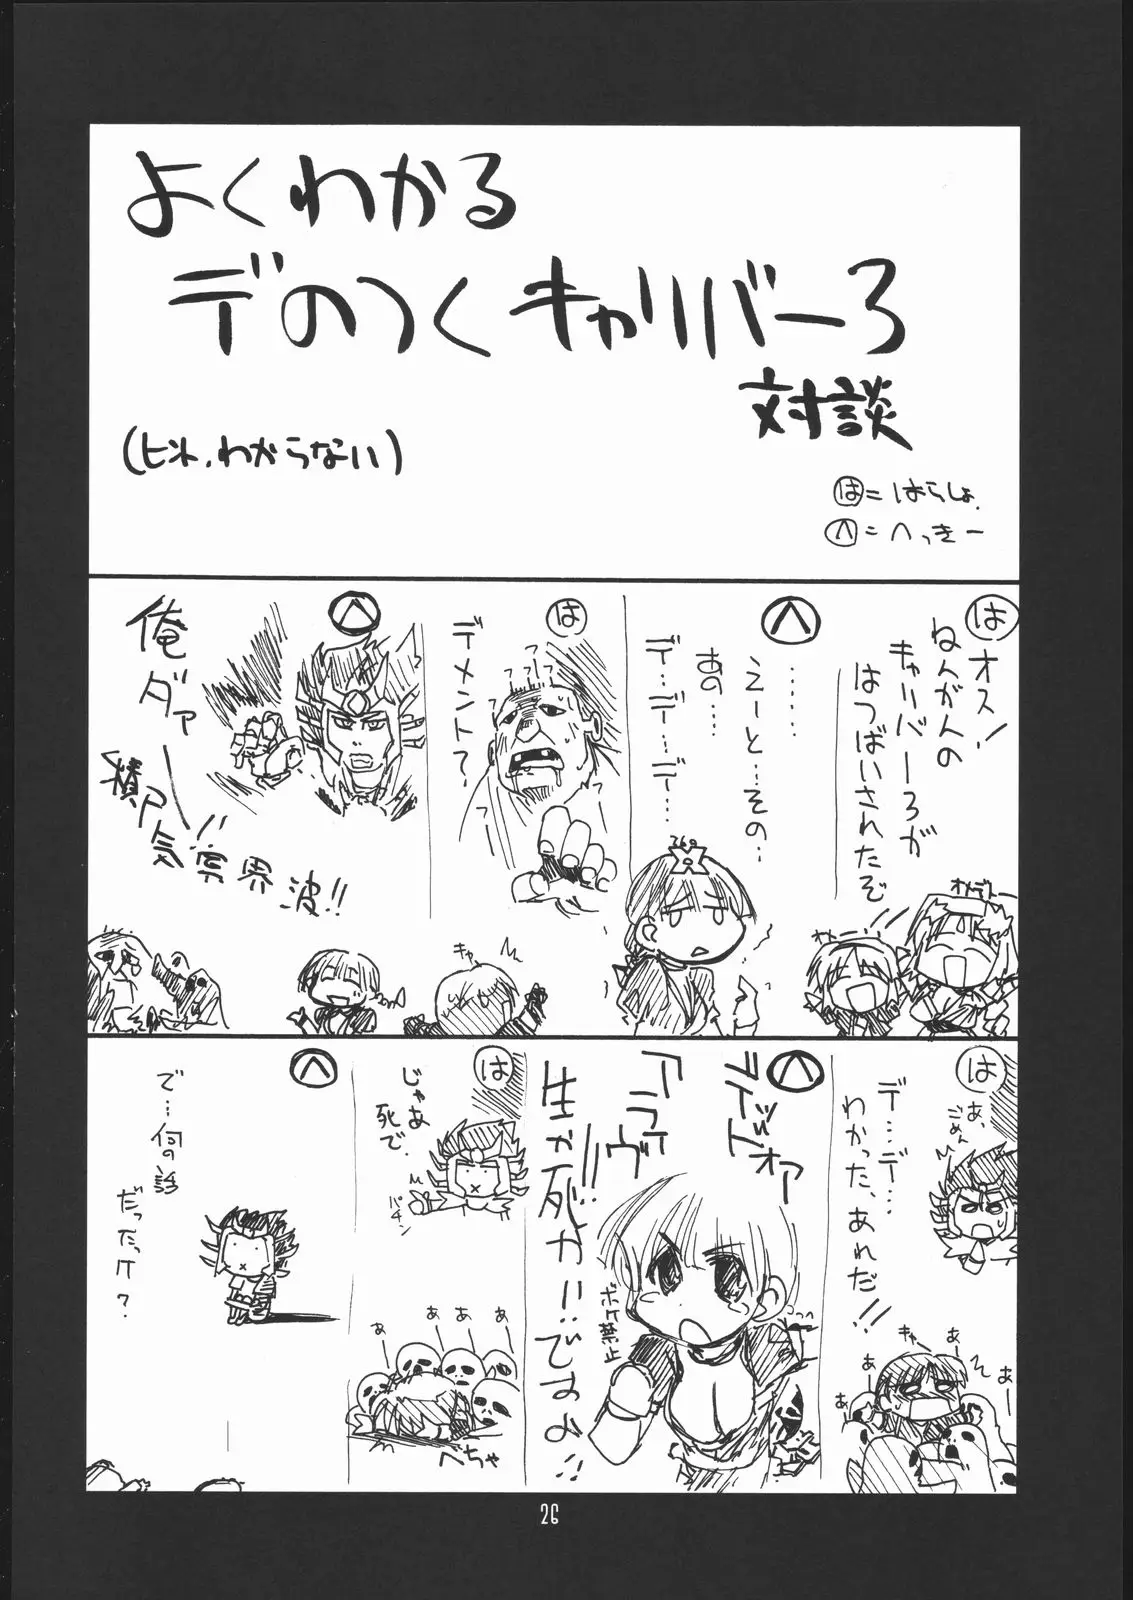 よくわかる
デのつくキャリバー3
対談
(ヒント、わからない)
は=はらしょ
へ=へっきー
は
オス!
ねんがんの
キャリバー3が
はつばいされたぞ
オメデトー
へ
……
えーと…その…
あの…
デ…デ…デ…
は
デメント?
???????
へ
俺ダァー
積尸気冥界波!!
キャー
は
デ…デ…
わかった、あれだ!!
あ、
ごめん
キャー
あー
あー
あー
へ
デッドオア
アライヴ
生か死か!!ですよ!!
ボケ禁止
は
じゃあ
死で。
パチン
あ
あ
あ
あ
へちゃ
へ
で…何の話
だったっけ?
26